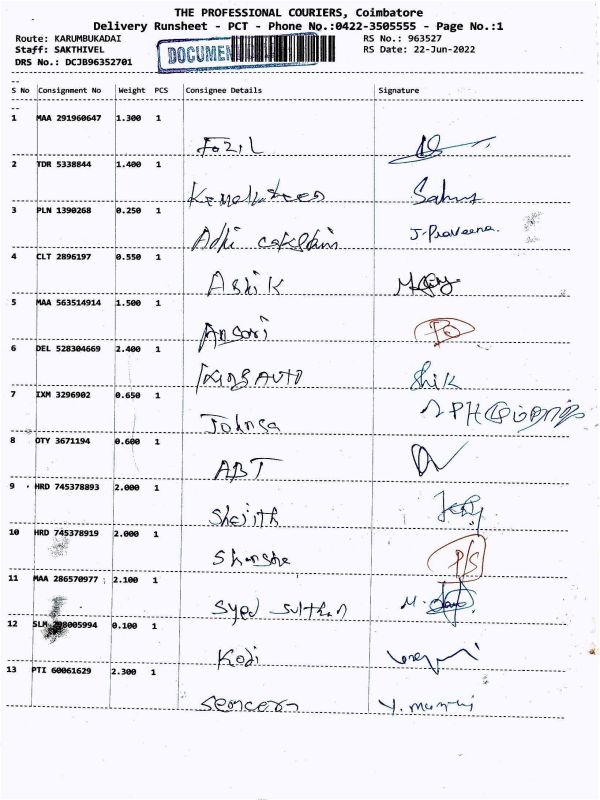 THE PROFESSIONAL COURIERS, Coimbatore
Delivery Runsheet - PCT - Phone No.:0422-3505555 - Page No.:1
Route: KARUMBUKADAI RS No.: 963527
Staff: SAKTHIVEL RS Date: 22-Jun-2022
DOCUMEN
DRS No.: DCJB96352701
S No Consignment No Weight PCS Consignee Details Signature
1 MAA 291960647 1.300 1
Fazil
2 TDR 5338844 1.400 1
3 PLN 1390268 0.250 1
Adhi J. Praveena.
4 CLT 2896197 0.550 1
Ashik
5 MAA 563514914 1.500 1
Ansari
6 DEL 528304669 2.400 1
King AUTO Shik
7 IXM 3296902 0.650 1
8 OTY 3671194 0.600 1
ABT
9 HRD 745378893 2.000 1
10 HRD 745378919 2.000 1
P/S
11 MAA 286570977 2.100 1
Syed Sulthan
12 SLM 1 0.100 1
Kodi
13 PTI 60061629 2.300 1